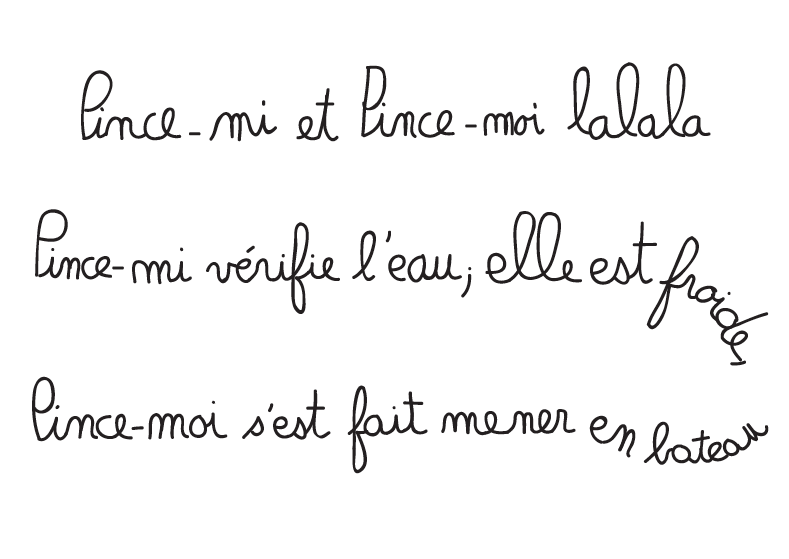 Pince-mi et Pince-moi lalala
Pince-mi vérifie l'eau; elle est froide,
Pince-moi s'est fait mener en bateau